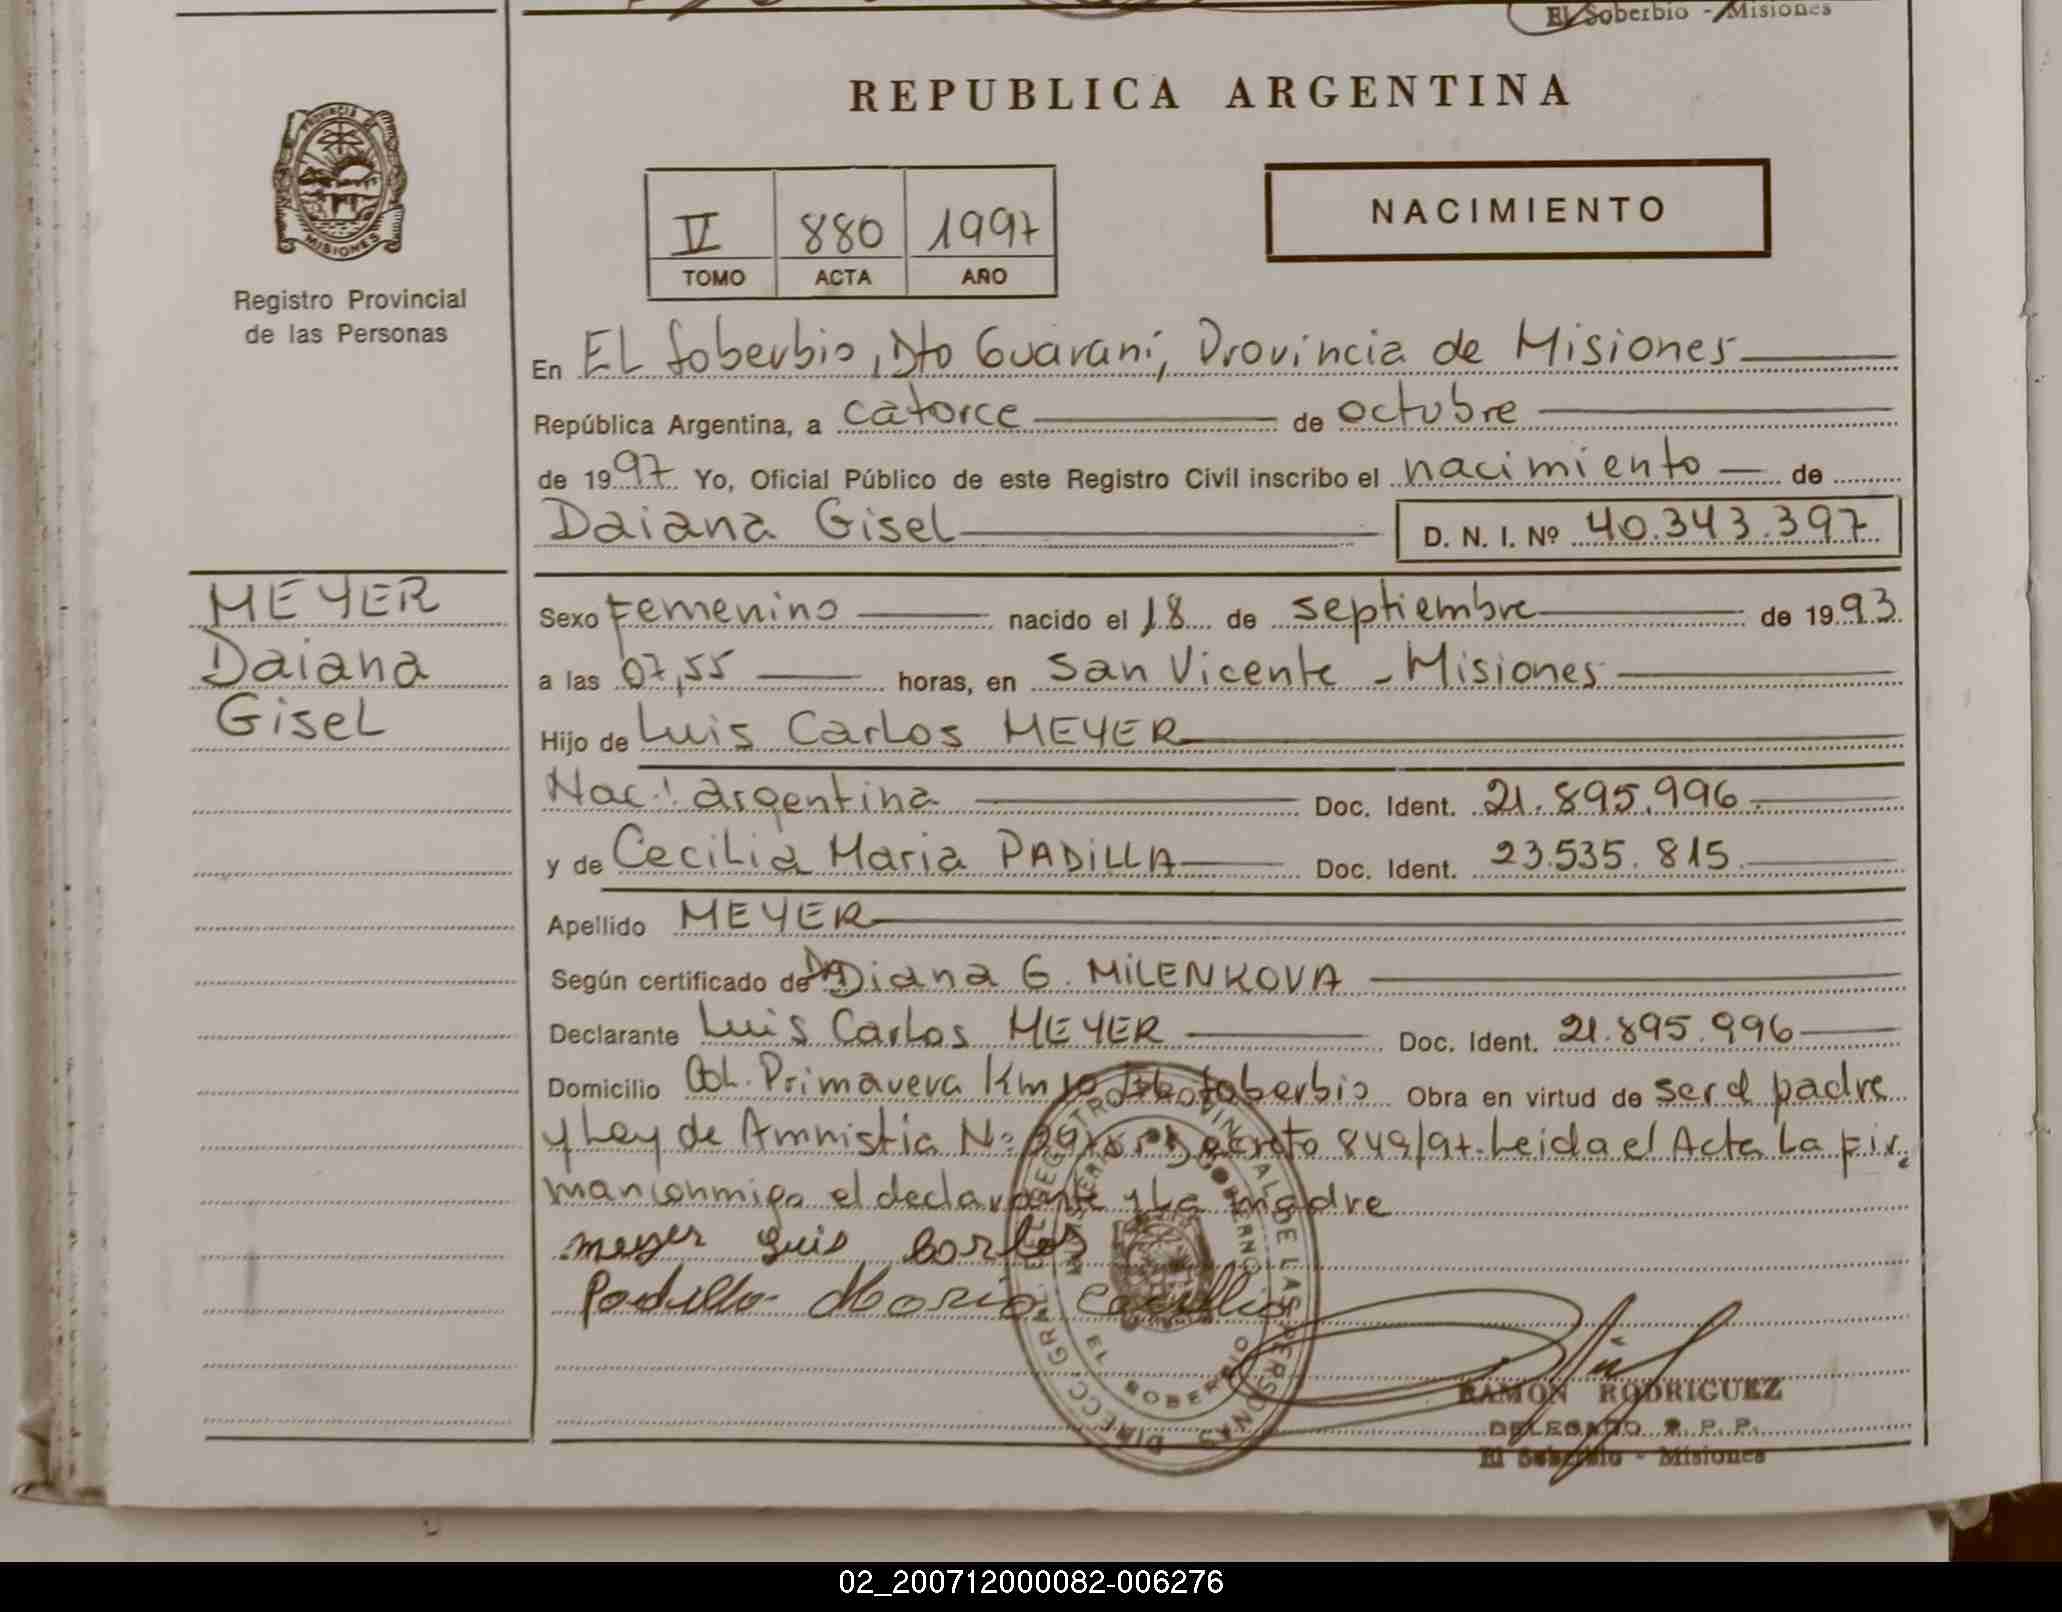 El Soberbio - Misiones
REPUBLICA ARGENTINA
PROVINCIA DE
MISIONES
Registro Provincial
de las Personas
NACIMIENTO
IV 880 1997
TOMO ACTA AÑO
En EL Soberbio, Dto Guaraní, Provincia de Misiones
República Argentina, a catorce de octubre
de 1997 Yo, Oficial Público de este Registro Civil inscribo el nacimiento de
Daiana Gisel D. N. I. Nº 40.343.397
MEYER
Daiana
Gisel
Sexo Femenino nacido el 18 de septiembre de 1993
a las 07,55 horas, en San Vicente - Misiones
Hijo de Luis Carlos MEYER
Nac: argentina Doc. Ident. 21.895.996
y de Cecilia Maria PADILLA Doc. Ident. 23.535.815
Apellido MEYER
Según certificado de Dra Diana G. MILENKOVA
Declarante Luis Carlos MEYER Doc. Ident. 21.895.996
Domicilio Col. Primavera Km 10 Soberbio Obra en virtud de ser el padre
y Ley de Amnistia Nº Decreto 849/97. Leida el Acta La fir
man conmigo el declarante y La madre
meyer Luis Carlos
Padilla Maria Cecilia
DIRECC. GRAL. DEL REGISTRO PROVINCIAL DE LAS PERSONAS
MINISTERIO DE GOBIERNO
EL SOBERBIO
RAMON RODRIGUEZ
DELEGADO R. P. P.
El Soberbio - Misiones
02_200712000082-006276